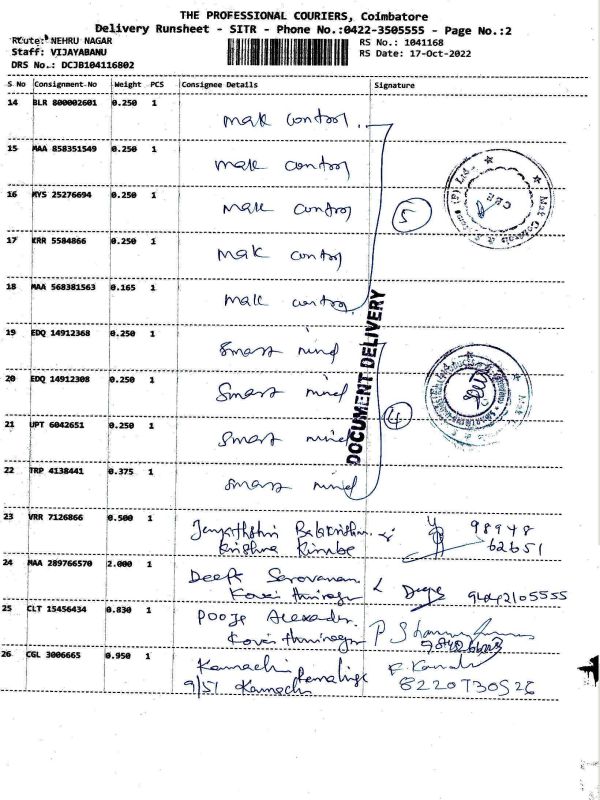 THE PROFESSIONAL COURIERS, Coimbatore
Delivery Runsheet - SITR - Phone No.:0422-3505555 - Page No.:2
Route: NEHRU NAGAR
Staff: VIJAYABANU
DRS No.: DCJB104116802
RS No.: 1041168
RS Date: 17-Oct-2022
S No Consignment-No Weight PCS Consignee Details Signature
14 BLR 800002601 0.250 1 mak control
15 MAA 858351549 0.250 1 mak control
16 MYS 25276694 0.250 1 mak control
5
17 KRR 5584866 0.250 1 mak control
18 MAA 568381563 0.165 1 mak control
DOCUMENT DELIVERY
19 EDQ 14912368 0.250 1 Smart mind
20 EDQ 14912308 0.250 1 Smart mind
4
21 UPT 6042651 0.250 1 Smart mind
22 TRP 4138441 0.375 1 Smart mind
23 VRR 7126866 0.500 1
Krishna 98948
62651
24 MAA 289766570 2.000 1 Deepk Saravanan
Deepa 9442105555
25 CLT 15456434 0.830 1 Pooja Alexander
26 CGL 3006665 0.950 1 Kamachi Ramalinga
9/51 Kamachi 8220730526